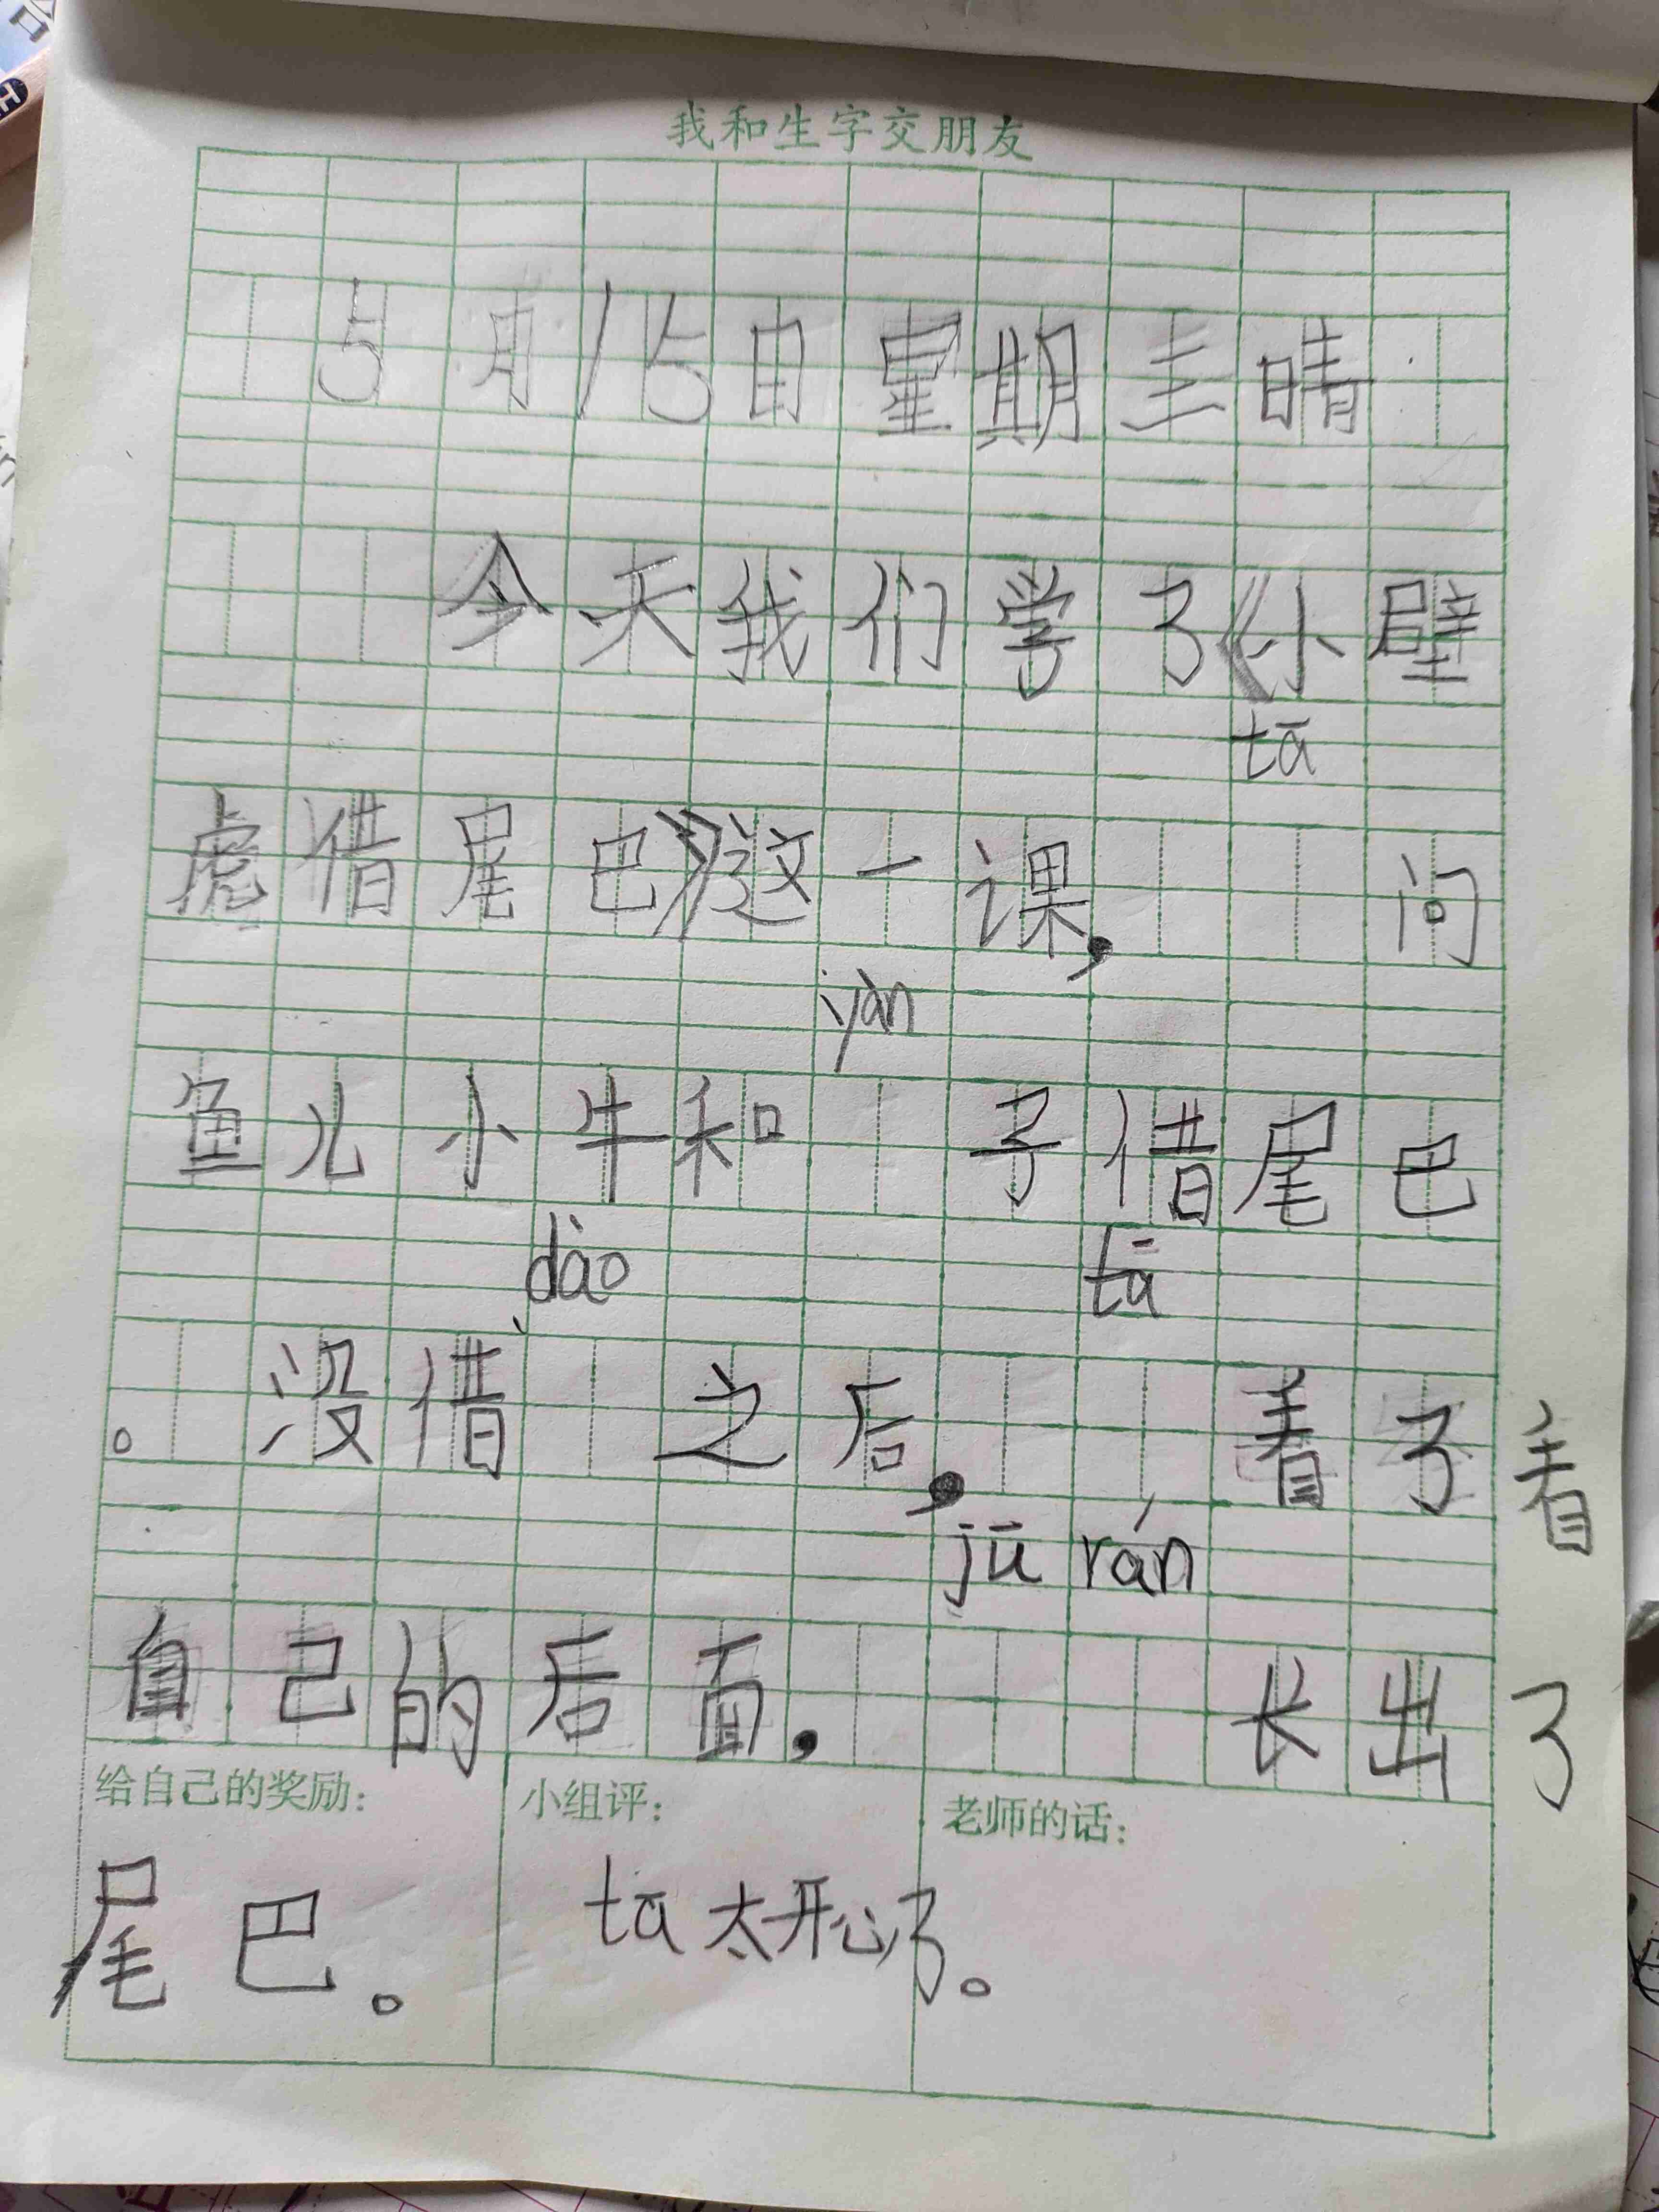 我和生字交朋友
5月15日星期三晴
今天我们学了《小壁
tā
虎借尾巴》这一课,问
yàn
鱼儿小牛和 子借尾巴
dào tā
。没借 之后,看了看
jū rán
自己的后面,长出了
给自己的奖励: 小组评: 老师的话:
尾巴。 tā太开心了。